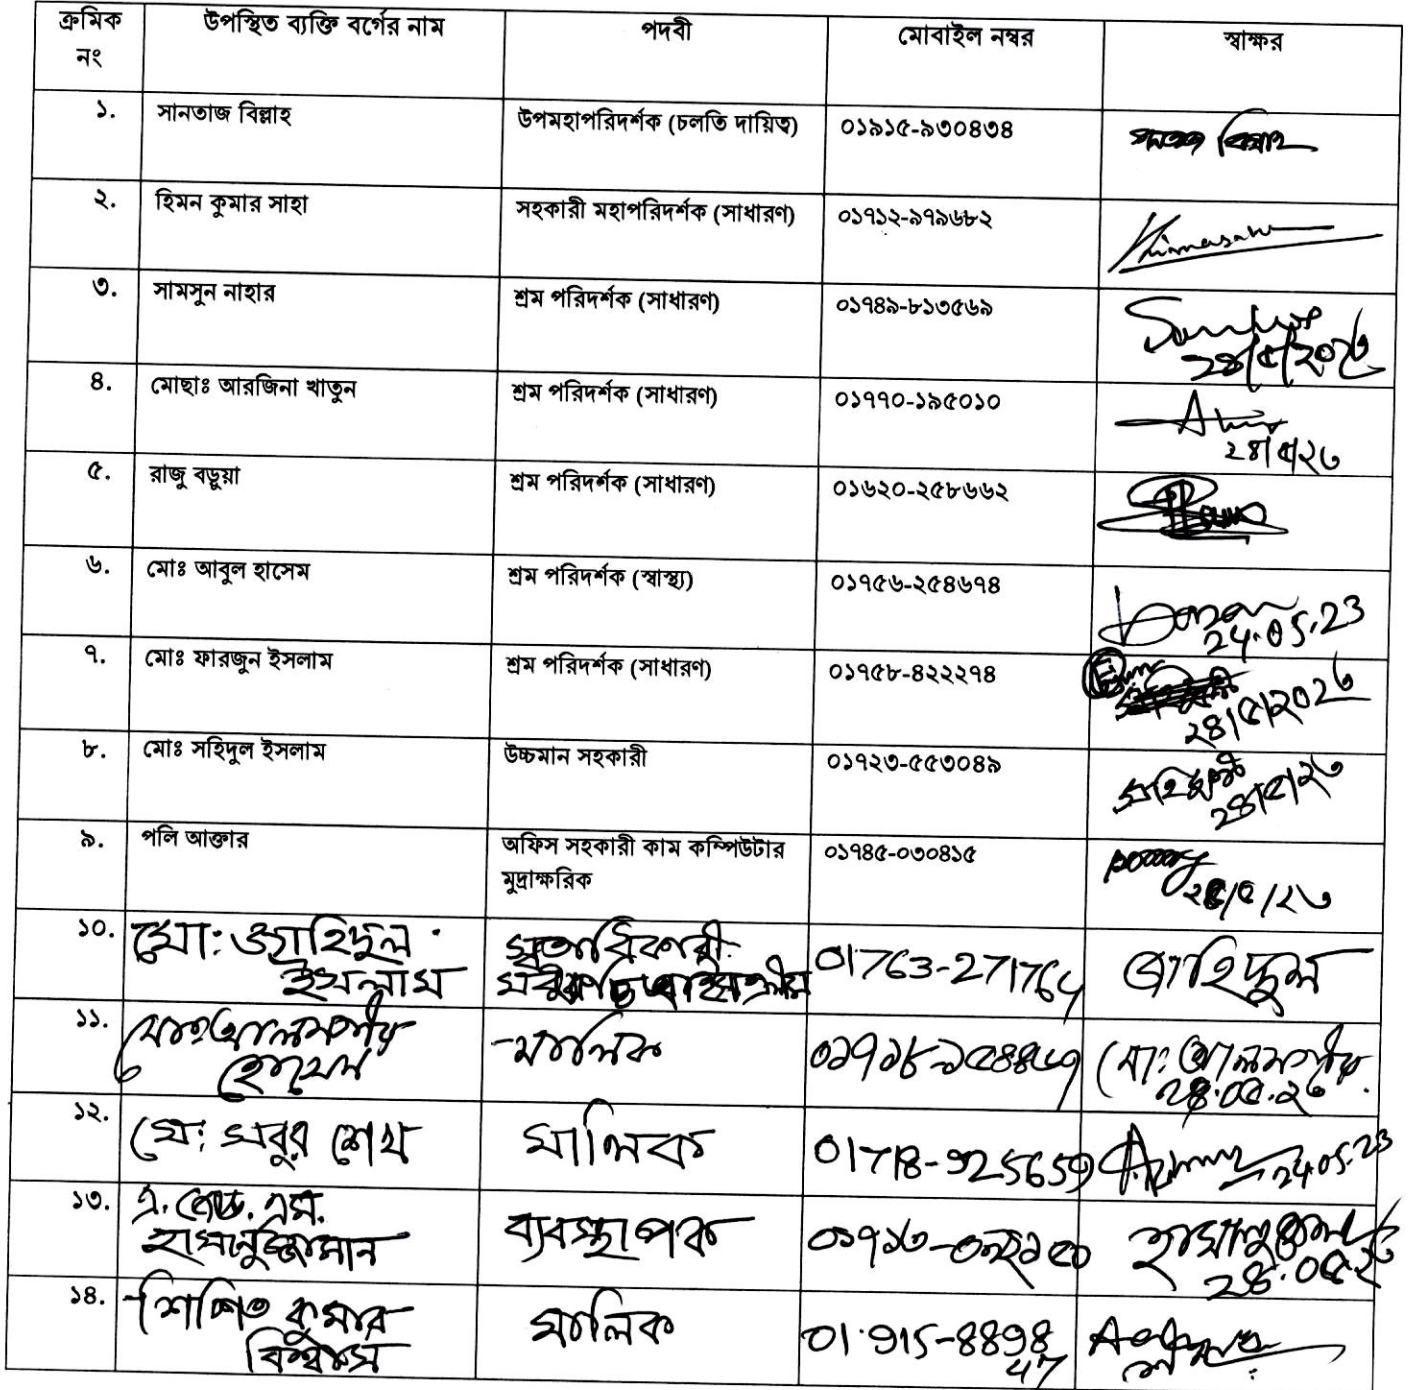 ক্রমিক নং উপস্থিত ব্যক্তি বর্গের নাম পদবী মোবাইল নম্বর স্বাক্ষর
১. সানতাজ বিল্লাহ উপমহাপরিদর্শক (চলতি দায়িত্ব) ০১৯১৫-৯৩০৪৩৪
২. হিমন কুমার সাহা সহকারী মহাপরিদর্শক (সাধারণ) ০১৭১২-৯৭৯৬৮২
৩. সামসুন নাহার শ্রম পরিদর্শক (সাধারণ) ০১৭৪৯-৮১৩৫৬৯
২৪/৫/২০২৩
৪. মোছাঃ আরজিনা খাতুন শ্রম পরিদর্শক (সাধারণ) ০১৭৭০-১৯৫০১০
২৪/৫/২৩
৫. রাজু বড়ুয়া শ্রম পরিদর্শক (সাধারণ) ০১৬২০-২৫৮৬৬২
৬. মোঃ আবুল হাসেম শ্রম পরিদর্শক (স্বাস্থ্য) ০১৭৫৬-২৫৪৬৭৪
24.05.23
৭. মোঃ ফারজুন ইসলাম শ্রম পরিদর্শক (সাধারণ) ০১৭৫৮-৪২২২৭৪
২৪/৫/২০২৩
৮. মোঃ সহিদুল ইসলাম উচ্চমান সহকারী ০১৭২৩-৫৫৩০৪৯
২৪/৫/২৩
৯. পলি আক্তার অফিস সহকারী কাম কম্পিউটার ০১৭৪৫-০৩০৪১৫
মুদ্রাক্ষরিক
১০. মো: ওয়াহিদুল স্বত্বাধিকারী 01763-271764 ওয়াহিদুল
ইসলাম
১১. মোঃ আলমগীর মালিক মো: আলমগীর
হোসেন ২৪.০৫.২৩
১২. মো: সবুর শেখ মালিক 01718-925659 24.05.23
১৩. এ. কে. এম. ব্যবস্থাপক
হাসানুজ্জামান ২৪.০৫.২৩
১৪. কুমার মালিক 01915-8898
বিশ্বাস 47